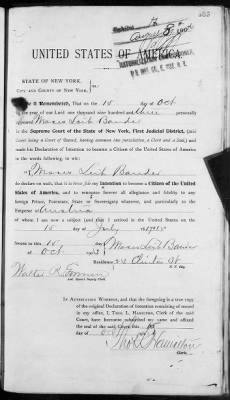 to
August 8th 190
UNITED STATES OF AMERICA.
STATE OF NEW YORK,
CITY AND COUNTY OF NEW YORK, } ss.:
Be it Remembered, That on the 15 day of Oct
in the year of our Lord one thousand nine hundred and personally
appeared Moses Leib Bander
in the Supreme Court of the State of New York, First Judicial District, (said
Court being a Court of Record, having common law jurisdiction, a Clerk and a Seal) and
made his Declaration of Intention to become a Citizen of the United States of America
in the words following, to wit:
I, Moses Leib Bander
do declare on oath, that it is bona fide my Intention to become a Citizen of the United
States of America, and to renounce forever all allegiance and fidelity to any
foreign Prince, Potentate, State or Sovereignty whatever, and particularly to the
Emperor of Austria
of whom I am now a subject (and that I arrived in the United States on the
15 day of July
Sworn this 15
day of Oct Moses Leib Bander
Residence Clinton St
N. Y. City
Walter R.
Special Deputy Clerk.
IN ATTESTATION WHEREOF, and that the foregoing is a true copy
of the original Declaration of Intention remaining of record
in my office, I, THOS. L. HAMILTON, Clerk of the said
Court, have hereunto subscribed my name and affixed
the seal of the said Court, this
day of
Thos. L. Hamilton
Clerk.